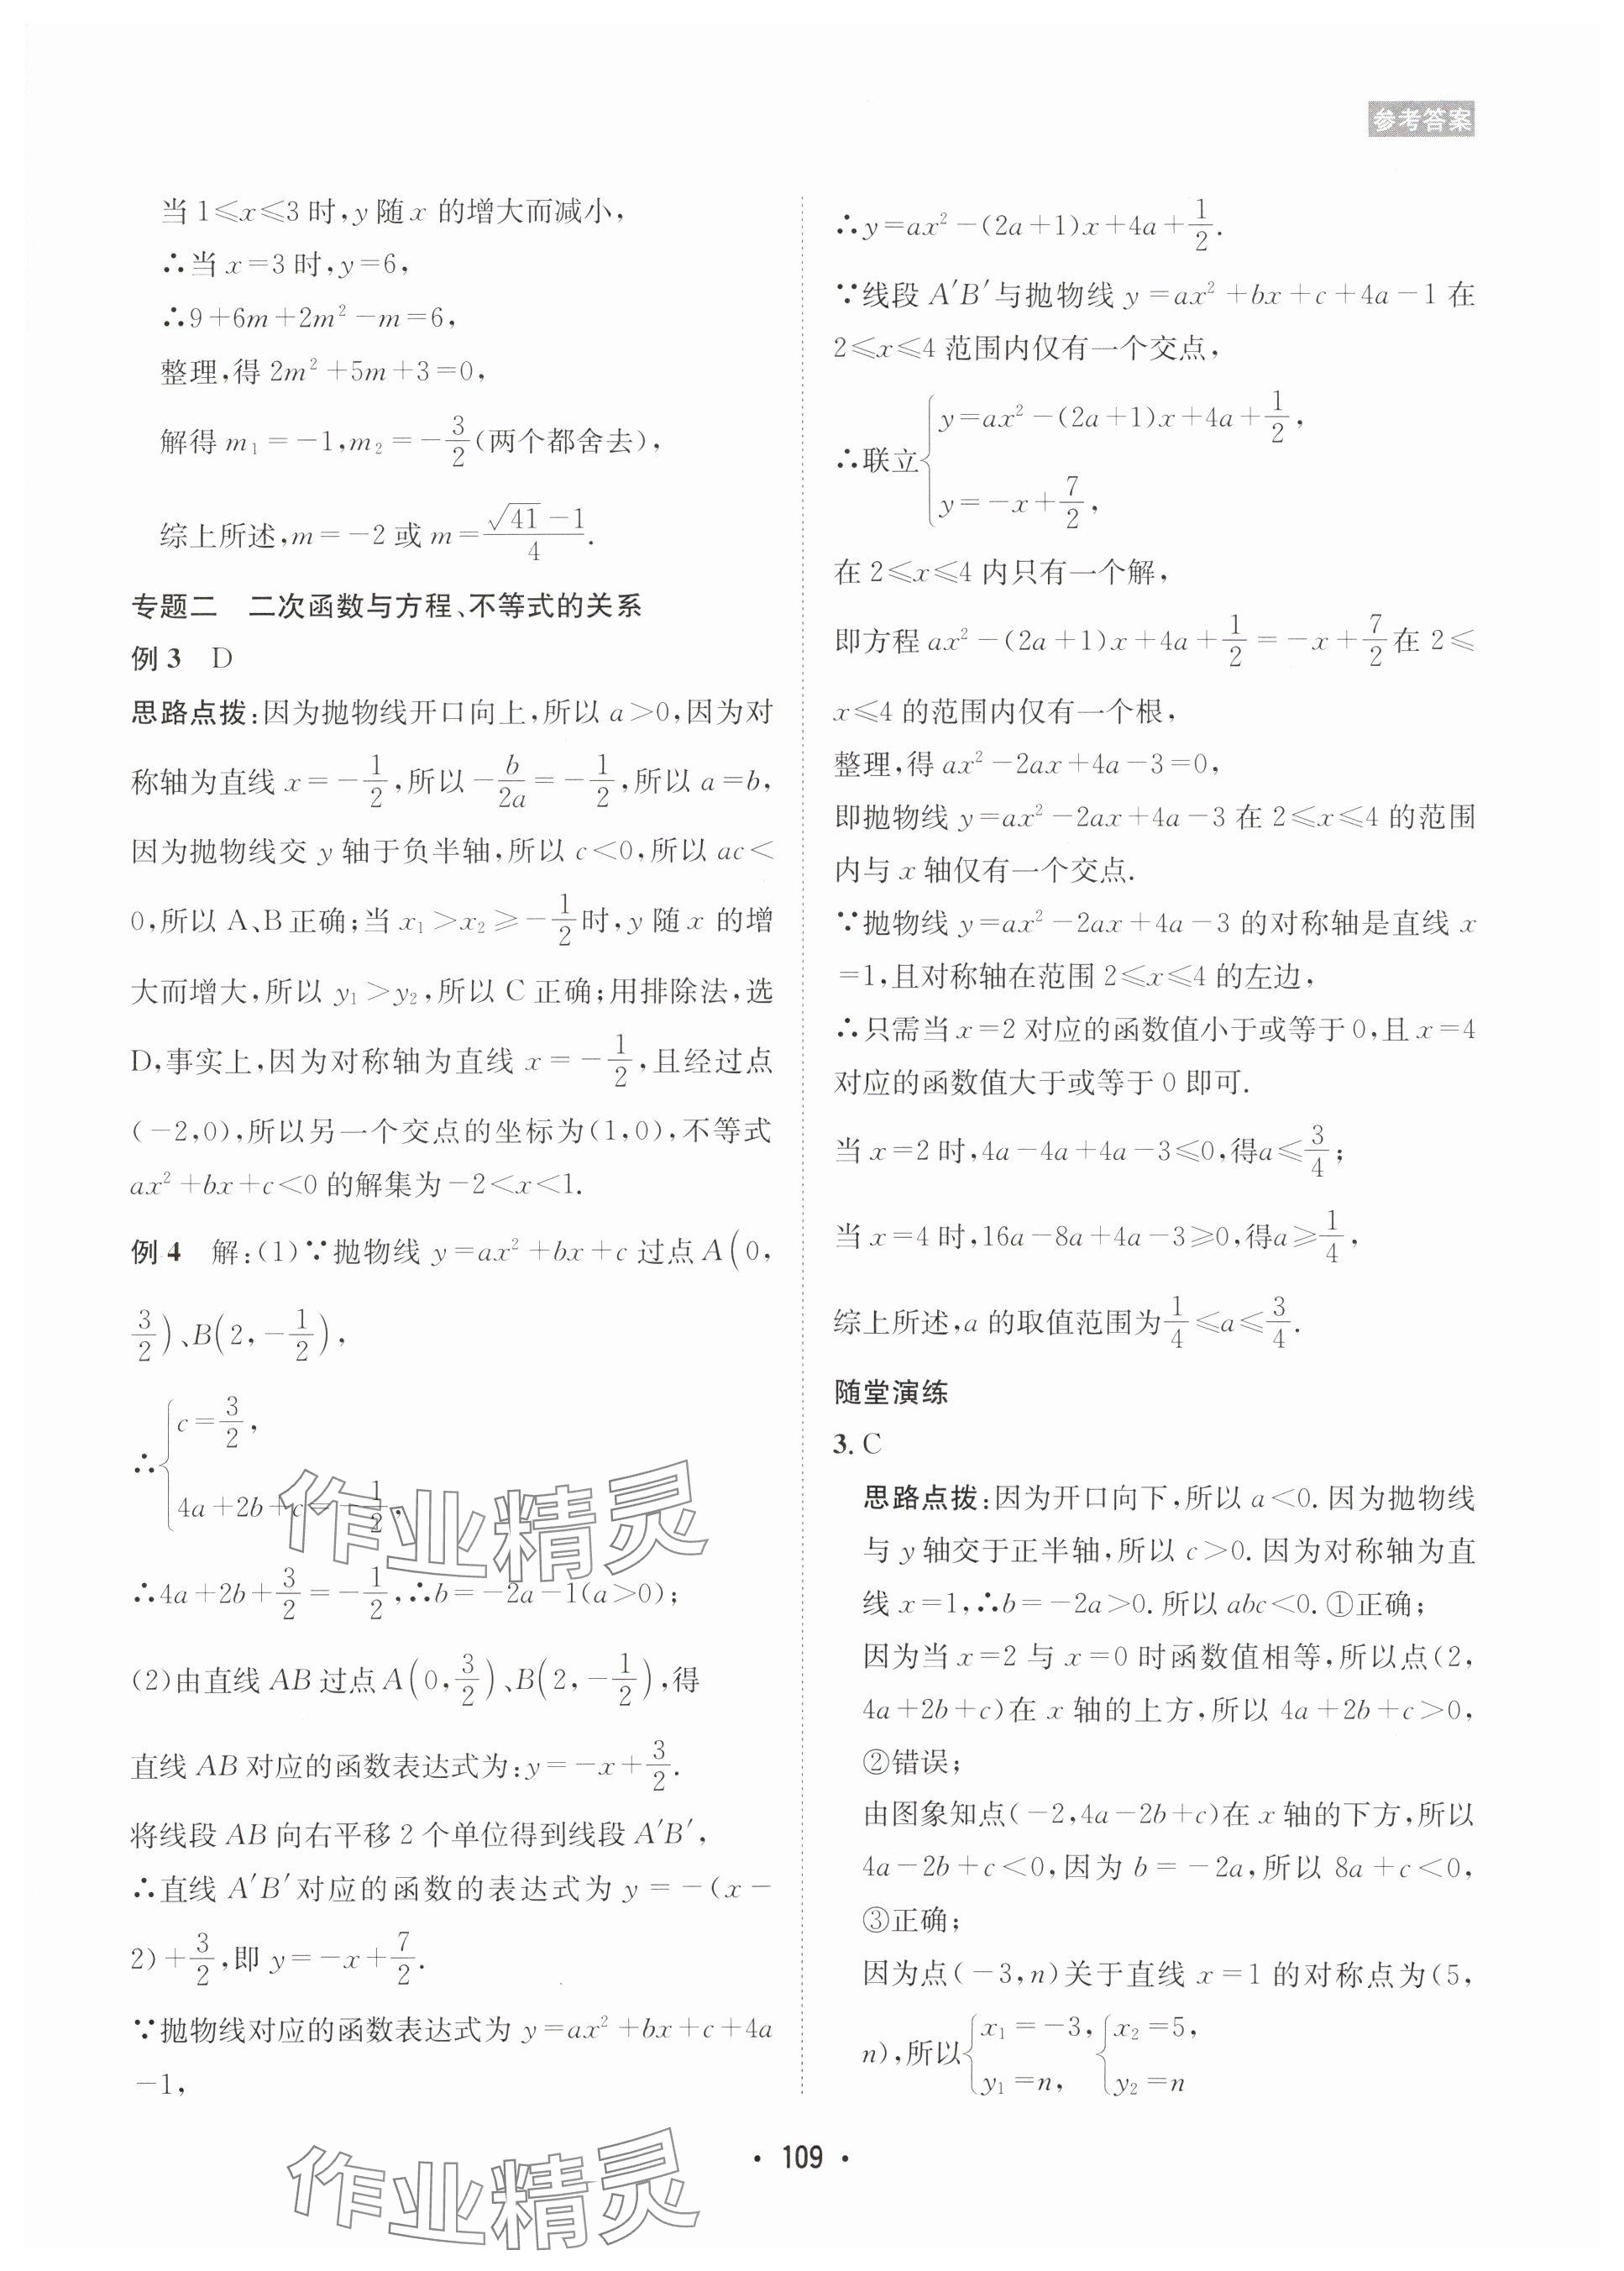 参考答案
当 1≤x≤3 时,y 随 x 的增大而减小,
∴当 x=3 时,y=6,
∴9+6m+2m²-m=6,
整理,得 2m²+5m+3=0,
解得 m₁=-1,m₂=-3/2(两个都舍去),
综上所述,m=-2 或 m=(√41-1)/4.
专题二 二次函数与方程、不等式的关系
例 3 D
思路点拨:因为抛物线开口向上,所以 a>0,因为对
称轴为直线 x=-1/2,所以-b/2a=-1/2,所以 a=b,
因为抛物线交 y 轴于负半轴,所以 c<0,所以 ac<
0,所以 A、B 正确;当 x₁>x₂≥-1/2时,y 随 x 的增
大而增大,所以 y₁>y₂,所以 C 正确;用排除法,选
D,事实上,因为对称轴为直线 x=-1/2,且经过点
(-2,0),所以另一个交点的坐标为(1,0),不等式
ax²+bx+c<0 的解集为-2<x<1.
例 4 解:(1)∵抛物线 y=ax²+bx+c 过点 A(0,
3/2)、B(2,-1/2),
∴{c=3/2,
4a+2b+c=-1/2.
∴4a+2b+3/2=-1/2,∴b=-2a-1(a>0);
(2)由直线 AB 过点 A(0,3/2)、B(2,-1/2),得
直线 AB 对应的函数表达式为:y=-x+3/2.
将线段 AB 向右平移 2 个单位得到线段 A′B′,
∴直线 A′B′对应的函数的表达式为 y=-(x-
2)+3/2,即 y=-x+7/2.
∵抛物线对应的函数表达式为 y=ax²+bx+c+4a
-1,
∴y=ax²-(2a+1)x+4a+1/2.
∵线段 A′B′与抛物线 y=ax²+bx+c+4a-1 在
2≤x≤4 范围内仅有一个交点,
∴联立{y=ax²-(2a+1)x+4a+1/2,
y=-x+7/2,
在 2≤x≤4 内只有一个解,
即方程 ax²-(2a+1)x+4a+1/2=-x+7/2在 2≤
x≤4 的范围内仅有一个根,
整理,得 ax²-2ax+4a-3=0,
即抛物线 y=ax²-2ax+4a-3 在 2≤x≤4 的范围
内与 x 轴仅有一个交点.
∵抛物线 y=ax²-2ax+4a-3 的对称轴是直线 x
=1,且对称轴在范围 2≤x≤4 的左边,
∴只需当 x=2 对应的函数值小于或等于 0,且 x=4
对应的函数值大于或等于 0 即可.
当 x=2 时,4a-4a+4a-3≤0,得a≤3/4;
当 x=4 时,16a-8a+4a-3≥0,得a≥1/4,
综上所述,a 的取值范围为1/4≤a≤3/4.
随堂演练
3. C
思路点拨:因为开口向下,所以 a<0. 因为抛物线
与 y 轴交于正半轴,所以 c>0. 因为对称轴为直
线 x=1,∴b=-2a>0. 所以 abc<0. ①正确;
因为当 x=2 与 x=0 时函数值相等,所以点(2,
4a+2b+c)在 x 轴的上方,所以 4a+2b+c>0,
②错误;
由图象知点(-2,4a-2b+c)在 x 轴的下方,所以
4a-2b+c<0,因为 b=-2a,所以 8a+c<0,
③正确;
因为点(-3,n)关于直线 x=1 的对称点为(5,
n),所以{x₁=-3, {x₂=5,
y₁=n, y₂=n
· 109 ·
作业精灵
作业精灵